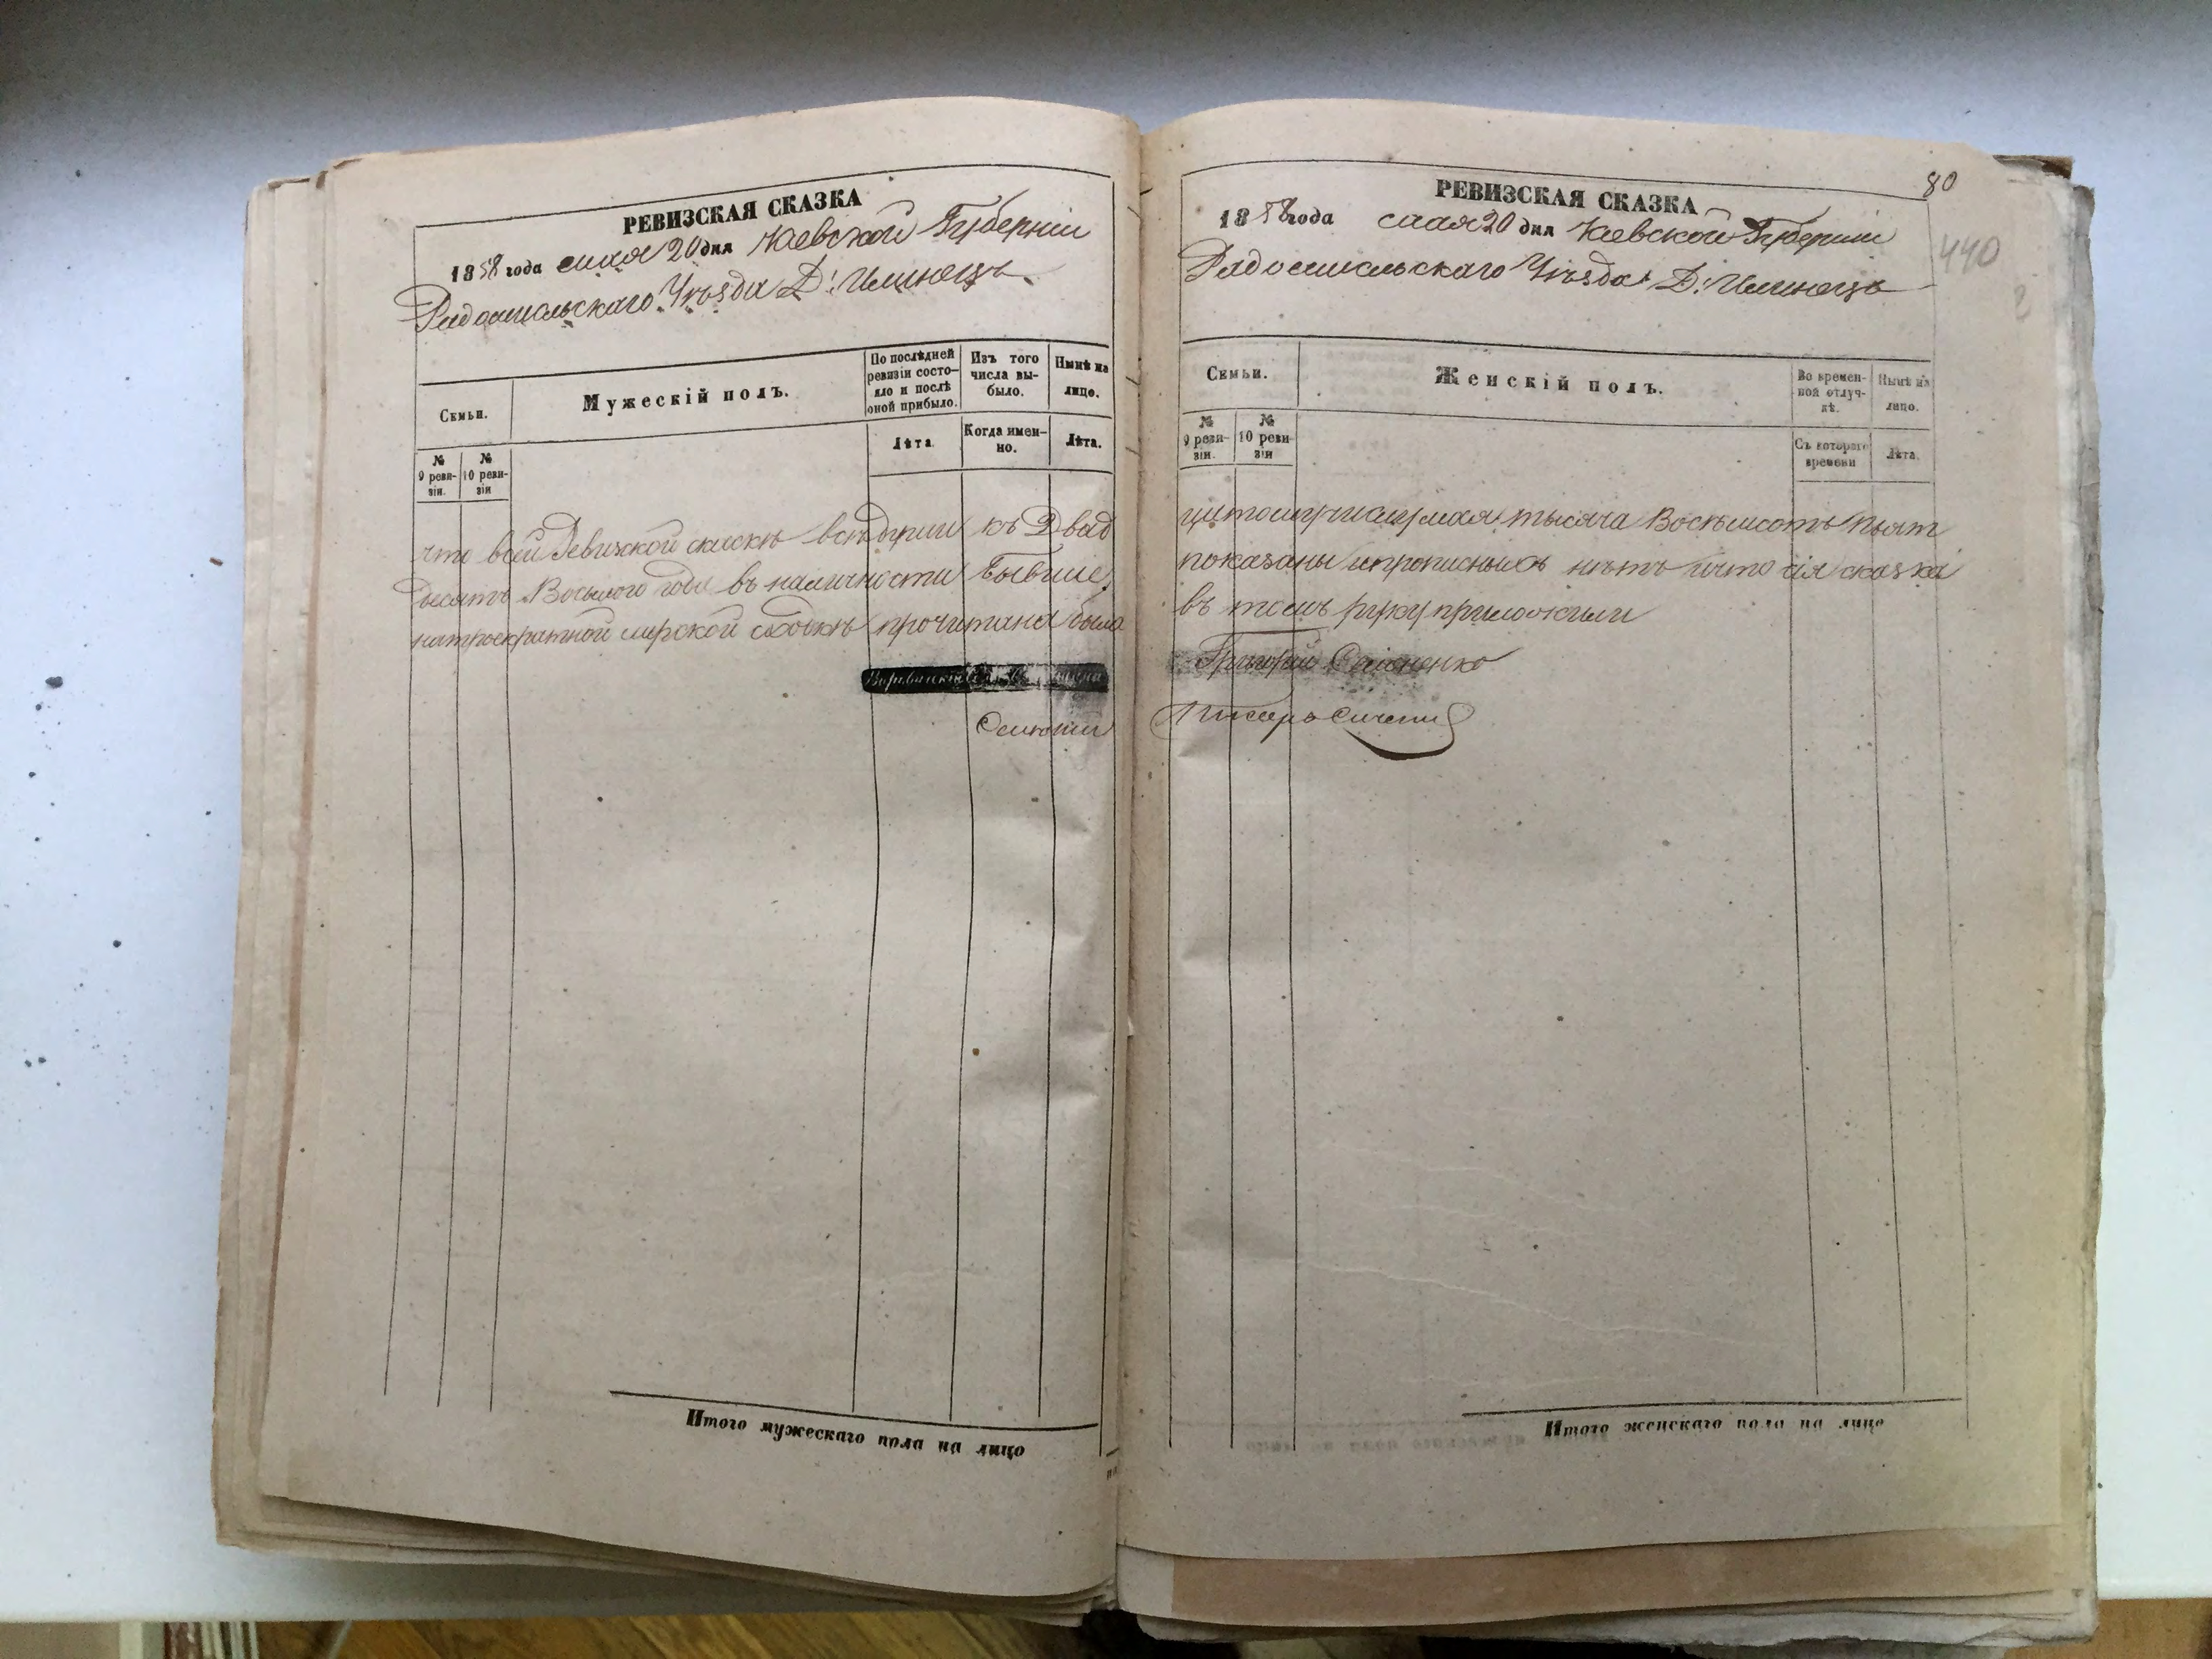 РЕВИЗСКАЯ СКАЗКА
1858 года мая 20 дня Кіевской Губерніи
Радомысльскаго Уѣзда Д: Илинецъ
Семьи.
Мужескій полъ.
По послѣдней ревизіи состояло и послѣ оной прибыло.
Изъ того числа выбыло.
Нынѣ на лицо.
№ 9 ревизіи.
№ 10 ревизіи
Лѣта.
Когда именно.
Лѣта.
что всей Ревизской скаскѣ всѣ души къ Двад
десять Восьмого года въ наличности Бывше
натроекратной мирской сходкѣ прочитана была
Итого мужескаго пола на лицо
80
440
РЕВИЗСКАЯ СКАЗКА
1858 года мая 20 дня Кіевской Губерніи
Радомысльскаго Уѣзда Д: Илинецъ
Семьи.
Женскій полъ.
Во временной отлучкѣ.
Нынѣ на лицо.
№ 9 ревизіи.
№ 10 ревизіи
Съ котораго времени
Лѣта.
тысяча Восемьсотъ пьят
показаны ипрописныхъ нѣтъ ичто сія сказка
въ томъ руку приложили
Григорій
Писарь
Итого женскаго пола на лицо